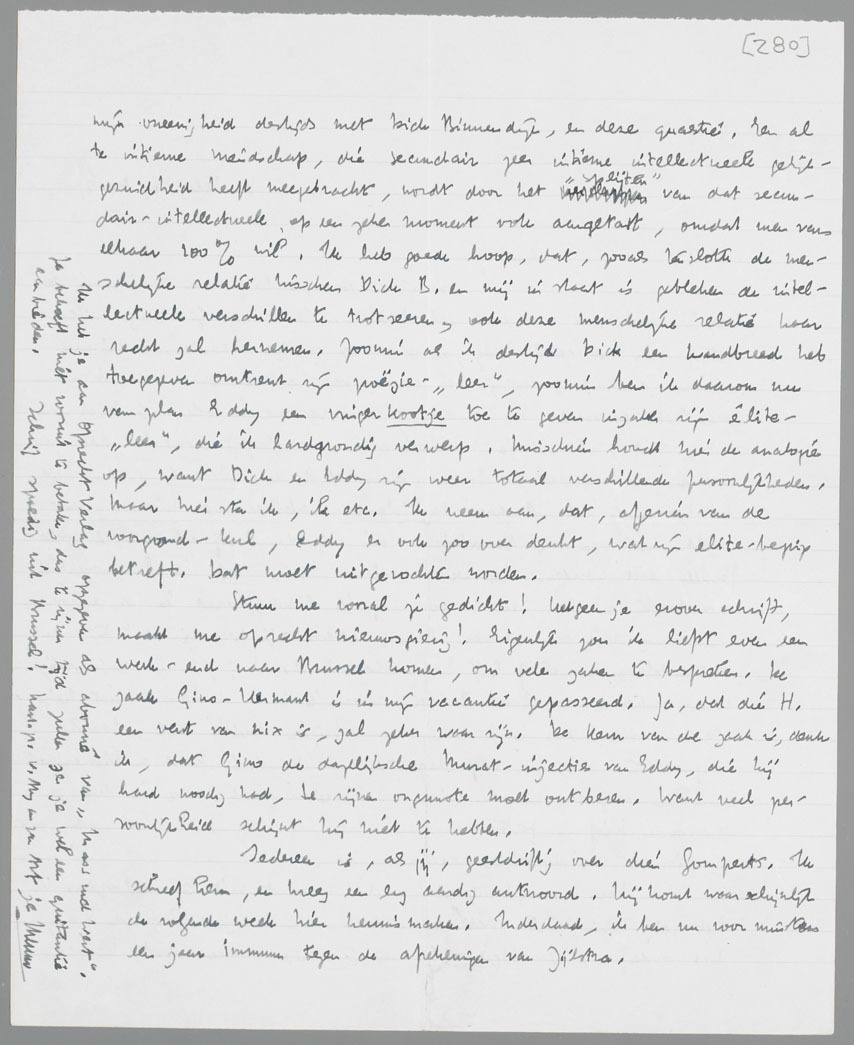 [280]
mijn oneenigheid destijds met Dick Binnendijk, en deze quaestie. Een al
te intieme vriendschap, die secundair zeer intieme intellectueele gelijk-
gezindheid heeft meegebracht, wordt door het „splijten" van dat secun-
dair-intellectueele, op een zeker moment ook aangetast, omdat men van
elkaar 100% wil. Ik heb goede hoop, dat, zooals tenslotte de men-
schelijke relatie tusschen Dick B. en mij in staat is gebleken de intel-
lectueele verschillen te trotseeren, ook deze menschelijke relatie haar
recht zal hernemen. Zoomin als ik destijds Dick een handbreed heb
toegegeven omtrent zijn poëzie-„leer", zoomin ben ik daarom nu
van plan Eddy een vinger kootje toe te geven inzake zijn élite-
„leer", die ik hardgrondig verwerp. Misschien houdt hier de analogie
op, want Dick en Eddy zijn weer totaal verschillende persoonlijkheden.
Maar hier sta ik, ik etc. Ik neem aan, dat, afgezien van de
voorgrond-kul, Eddy er ook zoo over denkt, wat zijn elite-begrip
betreft. Dat moet uitgevochten worden.
Stuur me vooral je gedicht! Hetgeen je erover schrijft,
maakt me oprecht nieuwsgierig! Eigenlijk zou ik liefst even een
week-end naar Brussel komen, om vele zaken te bespreken. De
zaak Gino-Hermant is in mijn vacantie gepasseerd. Ja, dat die H.
een vent van nix is, zal zeker waar zijn. De kern van de zaak is, denk
ik, dat Gino de dagelijksche Murat-injectie van Eddy, die hij
hard noodig had, te zijnen ongunste moet ontberen. Want veel per-
soonlijkheid schijnt hij niet te hebben.
Iedereen is, als jij, geestdriftig over dien Gomperts. Ik
schreef hem, en kreeg een erg aardig antwoord. Hij komt waarschijnlijk
de volgende week hier kennismaken. Inderdaad, ik ben nu voor minstens
een jaar immuun tegen de afscheiding van Zijlstra.
Ik heb je aan Oprecht Verlag opgegeven als abonné van „Mass und Wert".
Je behoeft niet vooruit te betalen, dus te zijner tijd zullen ze je wel een quitantie
aanbieden. Schrijf spoedig uit Brussel! Hart. gr. v. b. aan en van tot je Menno